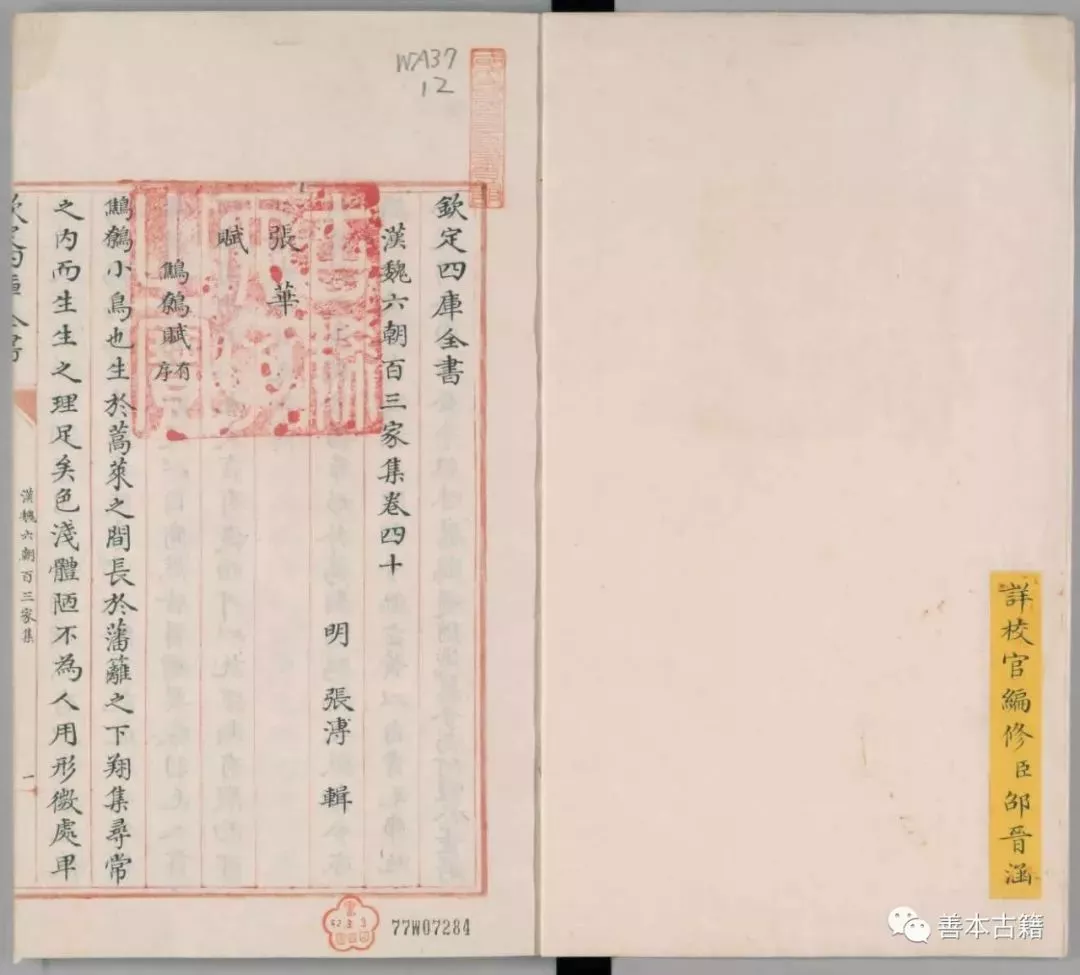 詳校官編修臣邵晉涵
WA37
12
欽定四庫全書
漢魏六朝百三家集卷四十
明 張溥 輯
張華
賦
鷦鷯賦有序
鷦鷯小鳥也生於蒿萊之間長於藩籬之下翔集尋常
之內而生生之理足矣色淺體陋不為人用形微處卑
欽定四庫全書
漢魏六朝百三家集
一
77W07284
善本古籍